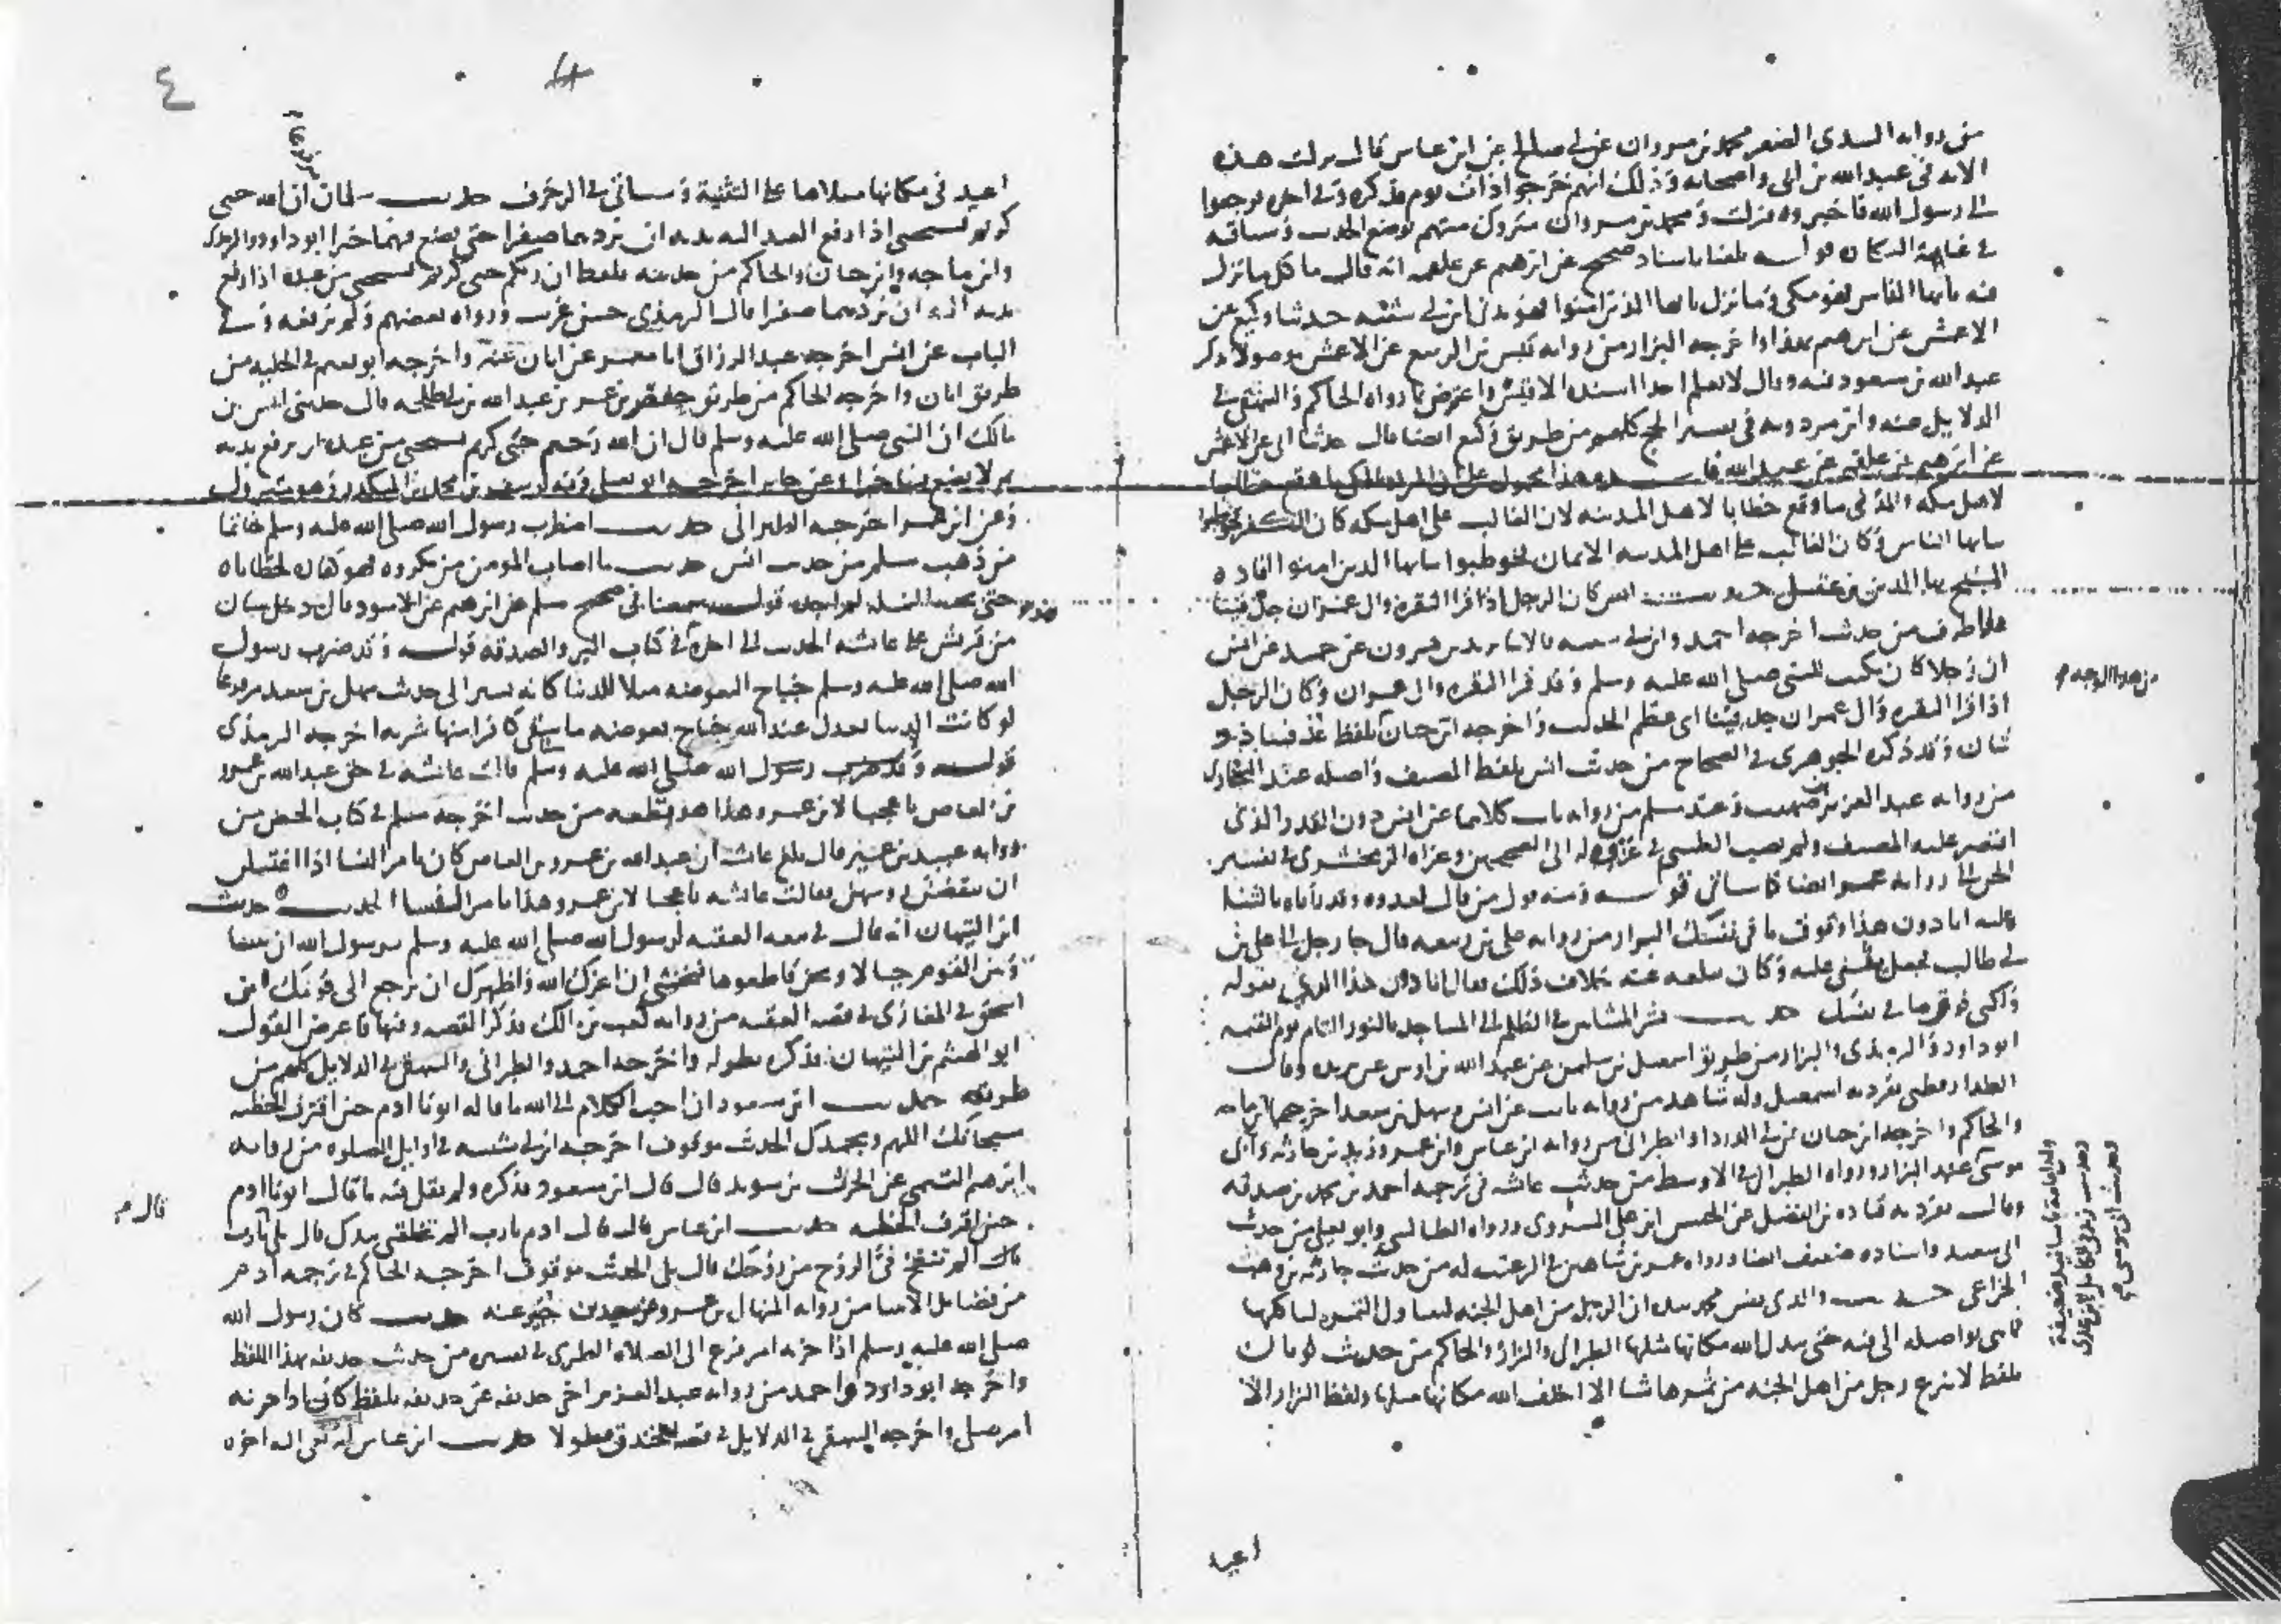 من رواية السدي الصغير محمد بن مروان عن أبي صالح عن ابن عباس قال نزلت هذه
الآية في عبد الله بن أبي وأصحابه وذلك أنهم خرجوا ذات يوم فذكره وفي آخره فرجعوا
إلى رسول الله فأخبروه فنزلت ومحمد بن مروان متروك متهم بوضع الحديث وسياقه
في غاية النكارة قوله بلغنا بإسناد صحيح عن إبرهيم عن علقمة أنه قال ما كل ما نزل
فيه يأيها الناس فهو مكي وما نزل يأيها الذين آمنوا فهو مدني ابن أبي شيبة حدثنا وكيع عن
الأعمش عن إبرهيم بهذا وأخرجه البزار من رواية قيس بن الربيع عن الأعمش موصولا بذكر
عبد الله بن مسعود فيه وقال لا نعلم أحدا أسنده إلا قيس واعترض بما رواه الحاكم والبيهقي في
الدلايل عنه وابن مردويه في تفسير الحج كلهم من طريق وكيع أيضا قال حدثنا أبي عن الأعمش
عن إبرهيم عن علقمة عن عبد الله وهذا محمول على أن المراد بالمكي ما وقع خطابا
لأهل مكة والمدني ما وقع خطابا لأهل المدينة لأن الغالب على أهل مكة كان الكفر فخوطبوا
بيأيها الناس وكان الغالب على أهل المدينة الإيمان فخوطبوا بيأيها الذين آمنوا أفاده
الشيخ بهاء الدين بن عقيل حديث أنس كان الرجل إذا قرأ البقرة وآل عمران جد فينا
هذا طرف من حديث أخرجه أحمد وابن أبي شيبة قالا ثنا يزيد بن هرون عن حميد عن أنس
أن رجلا كان يكتب للنبي صلى الله عليه وسلم وقد قرأ البقرة وآل عمران وكان الرجل
إذا قرأ البقرة وآل عمران جد فينا أي عظم الحديث وأخرجه ابن حبان بلفظ عد فينا ذو
شان وقد ذكره الجوهري في الصحاح من حديث أنس بلفظ المصنف وأصله عند البخاري
من رواية عبد العزيز بن صهيب وعند مسلم من رواية ثابت كلاهما عن أنس دون القدر الذي
اقتصر عليه المصنف ولم يصب الطيبي في عزوه له إلى الصحيحين وعزاه الزمخشري في تفسير
الجن إلى رواية عمر أيضا كما سيأتي قوله ومنه قول من قال لعدوه وقد بأباه بالثنا
عليه أنا دون هذا وفوق ما في نفسك البزار من رواية علي بن ربيعة قال جا رجل إلى علي بن
أبي طالب فجعل يثني عليه وكان يبلغه عنه خلاف ذلك فقال أنا دون هذا الذي تقوله
وأكبر فوق ما في نفسك حديث بشر المشائين في الظلم إلى المساجد بالنور التام يوم القيمة
أبو داود والترمذي والبزار من طريق إسمعيل بن سليمن عن عبد الله بن أوس عن بريدة وقال
الدارقطني تفرد به إسمعيل وله شاهد من رواية ثابت عن أنس وسهل بن سعد أخرجهما ابن ماجه
والحاكم وأخرجه ابن حبان عن أبي الدرداء والطبراني من رواية ابن عباس وابن عمر وزيد بن حارثة وأبي
موسى عند البزار ورواه الطبراني في الأوسط من حديث عائشة في ترجمة أحمد بن محمد بن صدقة
وقال تفرد به قتادة بن الفضل عن الحسن بن علي السروي ورواه الطيالسي وأبو يعلى من حديث
أبي سعيد وإسناده ضعيف أيضا ورواه عمر بن شاهين في الترغيب له من حديث حارثة بن وهب
الخزاعي حديث والذي نفس محمد بيده إن الرجل من أهل الجنة ليتناول الثمرة ليأكلها
فما هي بواصلة إلى فيه حتى يبدل الله مكانها مثلها الطبراني والبزار والحاكم من حديث ثوبان
بلفظ لا ينزع رجل من أهل الجنة من ثمرها شيئا إلا أخلف الله مكانها مثلها ولفظ البزار إلا
من هذا الوجه
وحديث أبي موسى
اعيد
٤
4
اعيد في مكانها مثلاها على التثنية وسيأتي في الزخرف حديث سلمان إن الله حيي
كريم يستحيي إذا رفع العبد إليه يديه أن يردهما صفرا حتى يضع فيهما خيرا أبو داود والترمذي
وابن ماجه وابن حبان والحاكم من حديثه بلفظ إن ربكم حيي كريم يستحيي من عبده إذا رفع
يديه إليه أن يردهما صفرا قال الترمذي حسن غريب ورواه بعضهم ولم يرفعه وفي
الباب عن أنس أخرجه عبد الرزاق أنا معمر عن أبان عنه وأخرجه أبو نعيم في الحلية من
طريق أبان وأخرجه الحاكم من طريق حفص بن عمر بن عبد الله بن أبي طلحة قال حدثني أنس بن
مالك أن النبي صلى الله عليه وسلم قال إن الله رحيم حيي كريم يستحيي من عبده أن يرفع يديه
ثم لا يضع فيهما خيرا وعن جابر أخرجه أبو يعلى وفيه يوسف بن محمد بن المنكدر وهو متروك
وعن ابن عمر أخرجه الطبراني حديث اضطرب رسول الله صلى الله عليه وسلم خاتما
من ذهب مسلم من حديث أنس حديث ما أصاب المؤمن من مكروه فهو كفارة لخطاياه
حتى نخبة النملة لم أجده قوله سمعنا في صحيح مسلم عن إبرهيم عن الأسود قال دخل شبان
من قريش على عائشة الحديث إلى آخره في كتاب البر والصدقة قوله وقد ضرب رسول
الله صلى الله عليه وسلم جناح البعوضة مثلا للدنيا كأنه يشير إلى حديث سهل بن سعد مرفوعا
لو كانت الدنيا تعدل عند الله جناح بعوضة ما سقى كافرا منها شربة أخرجه الترمذي
قالت عائشة في حق عبد الله بن عمرو
بن العاص يا عجبا لابن عمرو هذا هو قطعة من حديث أخرجه مسلم في كتاب الحيض من
رواية عبيد بن عمير قال بلغ عائشة أن عبد الله بن عمرو بن العاص كان يأمر النسا إذا اغتسلن
أن ينقضن رؤسهن فقالت عائشة يا عجبا لابن عمرو هذا يأمر النسا الحديث حديث
ابن التيهان أنه قال في بيعة العقبة لرسول الله صلى الله عليه وسلم يرسول الله إن بيننا
وبين القوم حبالا ونحن قاطعوها فنخشى إن أعزك الله وأظهرك أن ترجع إلى قومك ابن
إسحق في المغازي في قصة العقبة من رواية كعب بن مالك فذكر القصة وفيها فاعترض القول
أبو الهيثم بن التيهان فذكره بطوله وأخرجه أحمد والطبراني والبيهقي في الدلايل كلهم من
طريقه حديث ابن مسعود إن أحب الكلام إلى الله ما قاله أبونا آدم حين اقترف الخطية
سبحانك اللهم وبحمدك الحديث موقوف أخرجه ابن أبي شيبة في أوايل الصلوة من رواية
إبرهيم التيمي عن الحرث بن سويد قال قال ابن مسعود فذكره ولم يقل فيه ما قال أبونا آدم
حين اقترف الخطية حديث ابن عباس قال قال آدم يا رب ألم تخلقني بيدك قال بلى يا رب
قال ألم تنفخ في الروح من روحك قال بلى الحديث موقوف أخرجه الحاكم في ترجمة آدم
من فضايل الأنبيا من رواية المنهال بن عمرو عن سعيد بن جبير عنه حديث كان رسول الله
صلى الله عليه وسلم إذا حزبه أمر فزع إلى الصلاة الطبري في تفسيره من حديث حذيفة بهذا اللفظ
وأخرجه أبو داود وأحمد من رواية عبد العزيز أخي حذيفة عن حذيفة بلفظ كان إذا حزبه
أمر صلى وأخرجه البيهقي في الدلايل في قصة الخندق مطولا حديث ابن عباس أنه نعي إليه أخوه
قال م